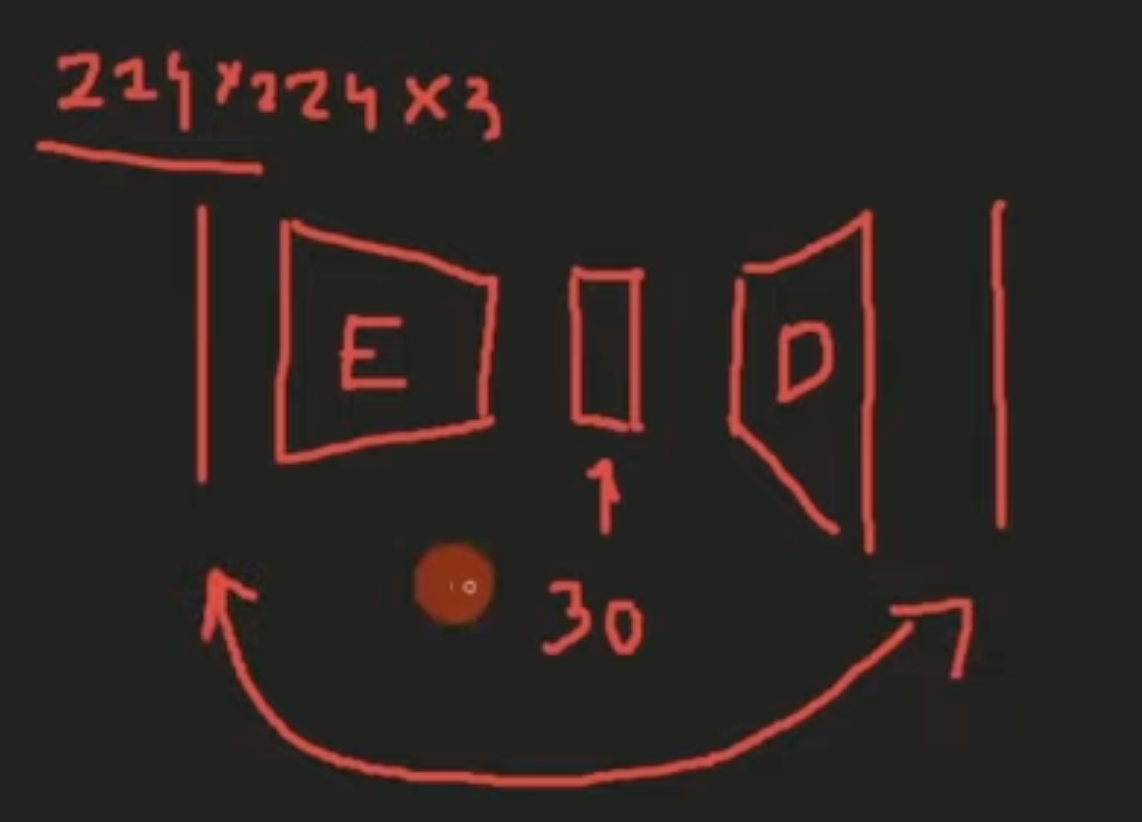 224×224×3
E D
30